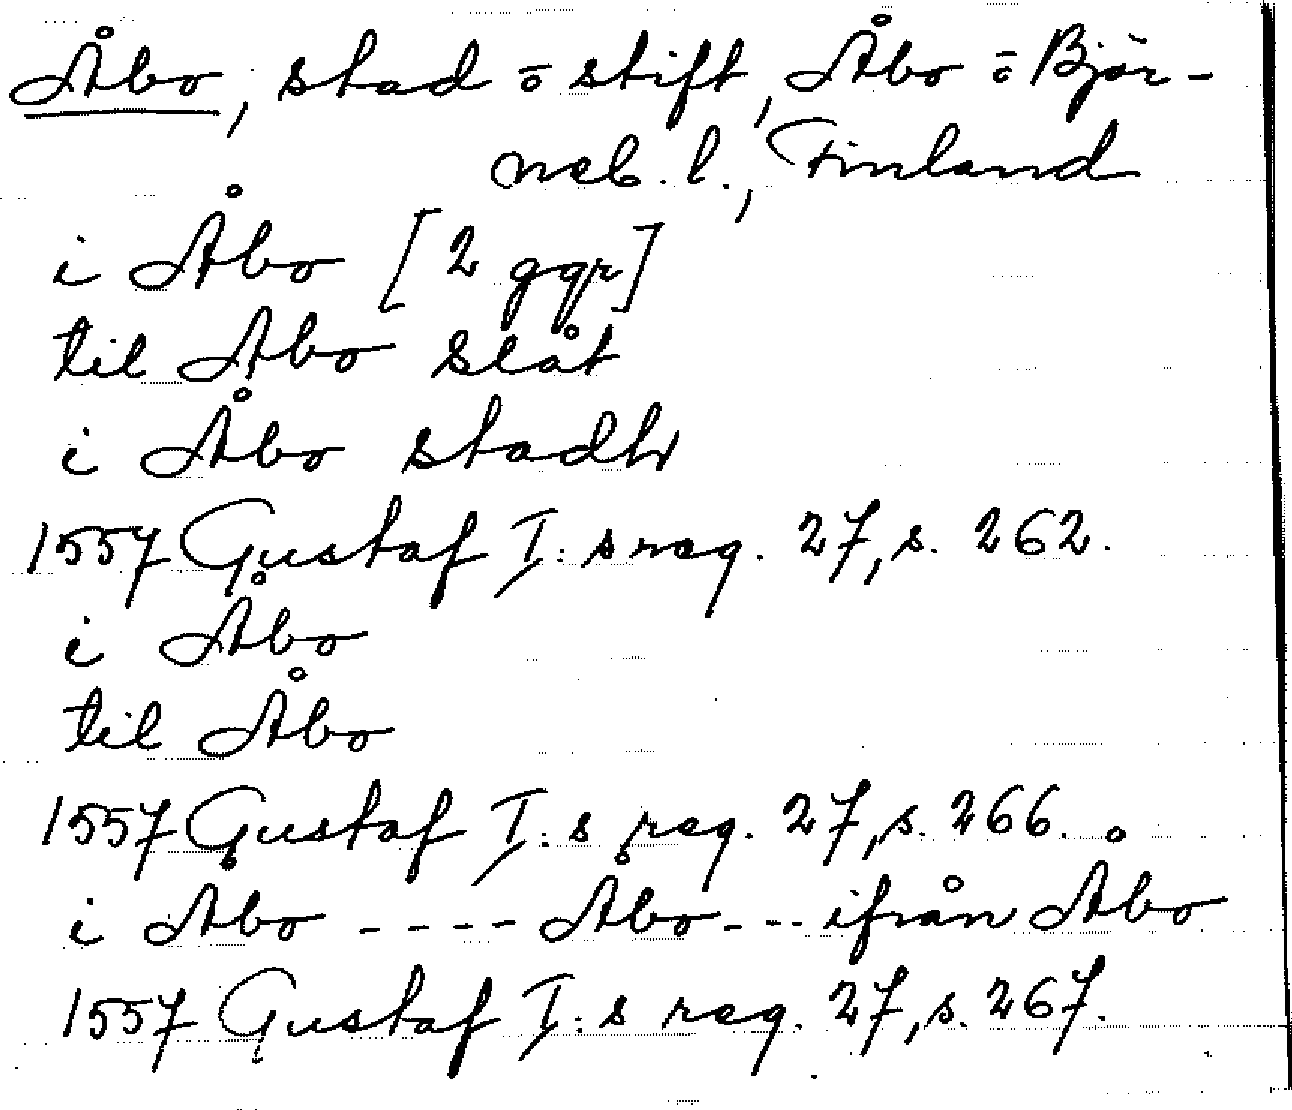 Åbo, stad o stift, Åbo o Björ-
neb. l., Finland
i Åbo [2 ggr]
til Åbo slåt
i Åbo stadh
1557 Gustaf I:s reg. 27, s. 262.
i Åbo
til Åbo
1557 Gustaf I:s reg. 27, s. 266.
i Åbo ---- Åbo --- ifrån Åbo
1557 Gustaf I:s reg. 27, s. 267.